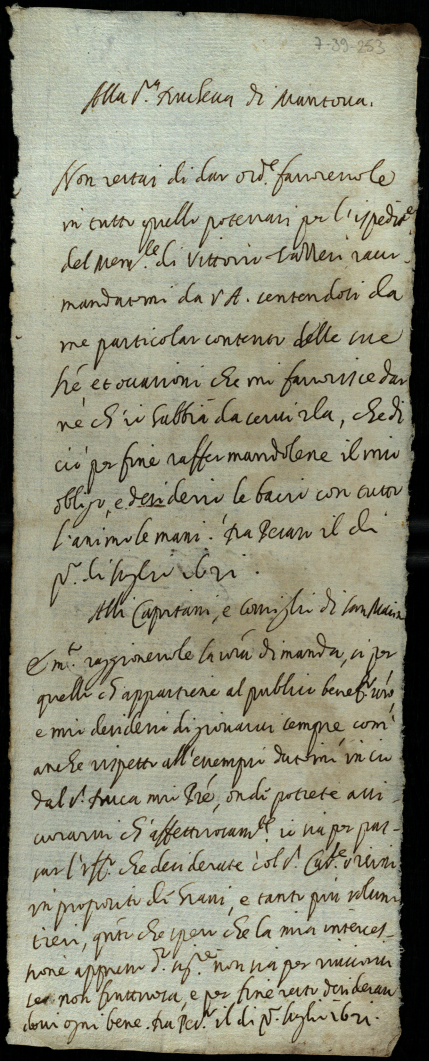 7-39-253
Alla S.ra Duchessa di Mantova.
Non restai di dar ord.e favorevole
in tutto quello potevasi per l'ispedit.e
del Mem.le di Vittorio racco-
mandatomi da V A. sentendosi da
me particolar contento delle sue
et occasioni che mi favorisce dar
né ch'io habbia da servirla, che di
ciò per fine raffermandolene il mio
obligo, e desiderio le bacio con tutto
l'animo le mani. Da Pesaro il di
p.o di luglio 1621.
Alli Capitani, e consiglio di San Marino
È m.o raggionevole la vrã dimanda, si per
quello ch'appartiene al publico benef.o vrõ,
e mio desiderio di giovarvi sempre com'
anche rispetto all'essempio datomi in ciò
dal S.r Duca mio Pré, onde potrete assi-
curarvi ch'affettuosam.te io sia per pas-
sar l'uff.o che desiderate col S.r
in proposito di grani, e tanto più volon-
tieri, q.nto che spero che la mia interces-
sione appresso non sia per riuscirvi
se non fruttuosa, e per fine resto desideran
dovi ogni bene. Da Pes.o il di p.o luglio 1621.